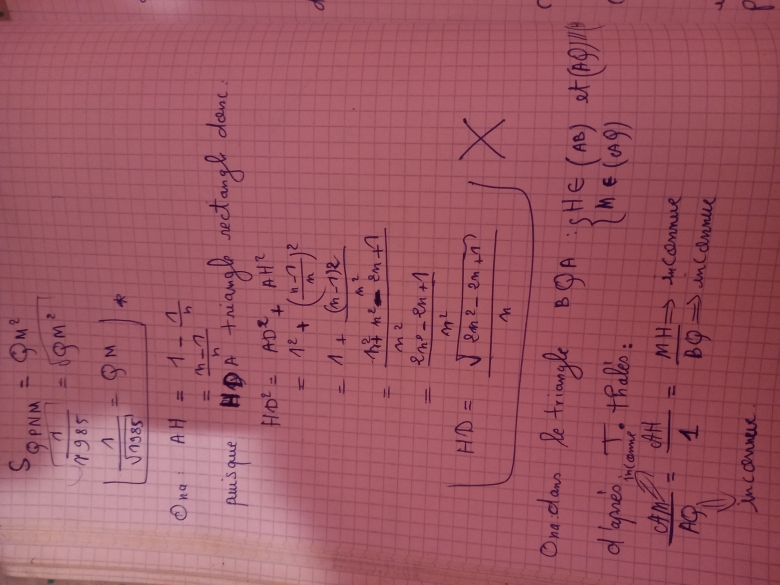 S_QPNM = QM²
√(1/1985) = √QM²
1/√1985 = QM *
On a : AH = 1 - 1/n
= (n-1)/n
puisque HDA triangle rectangle donc :
HD² = AD² + AH²
= 1² + ((n-1)/n)²
= 1 + (n-1)²/n²
= (n² + n² - 2n + 1)/n²
= (2n² - 2n + 1)/n²
HD = √(2n² - 2n + 1)/n X
On a : dans le triangle BQA : { H ∈ (AB) et (AQ) //
{ M ∈ (AQ)
d'après T. thalés :
inconnue
AM/AQ = AH/1 = MH/BQ ⇒ inconnue
⇒ inconnue
inconnue